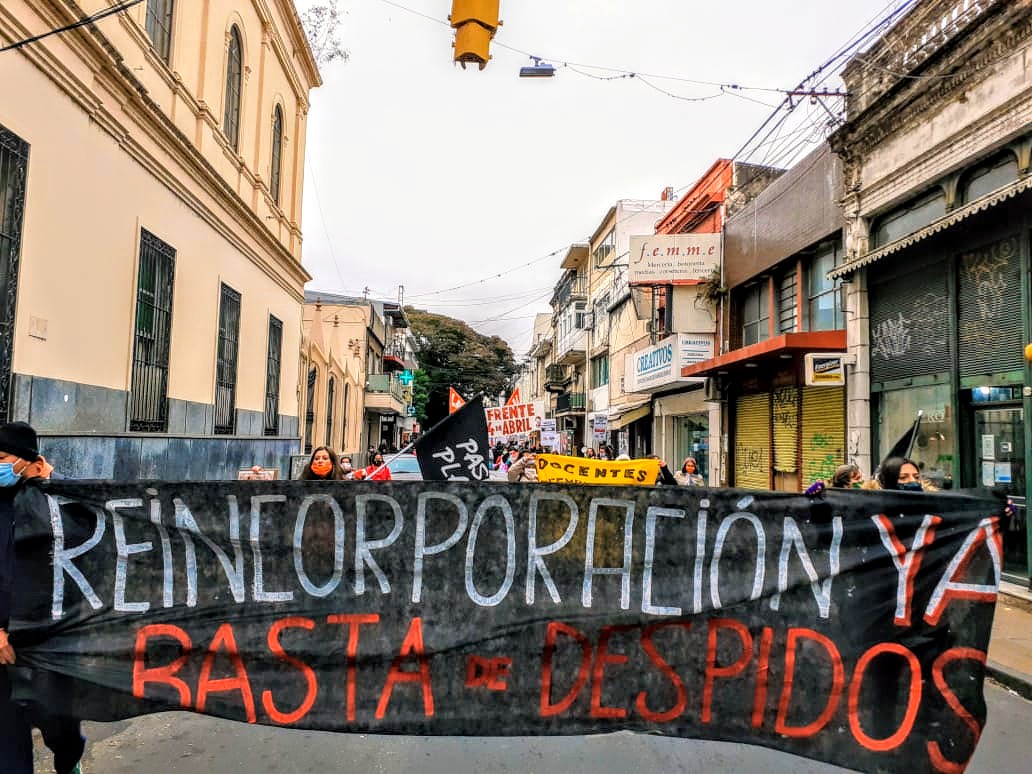 f.e.m.m.e
Mercería . bonetería
CREATIVOS
CREATIVOS
Energizer
FRENTE
4 DE ABRIL
PAS
PL
DOCENTES
REINCORPORACIÓN YA
BASTA DE DESPIDOS